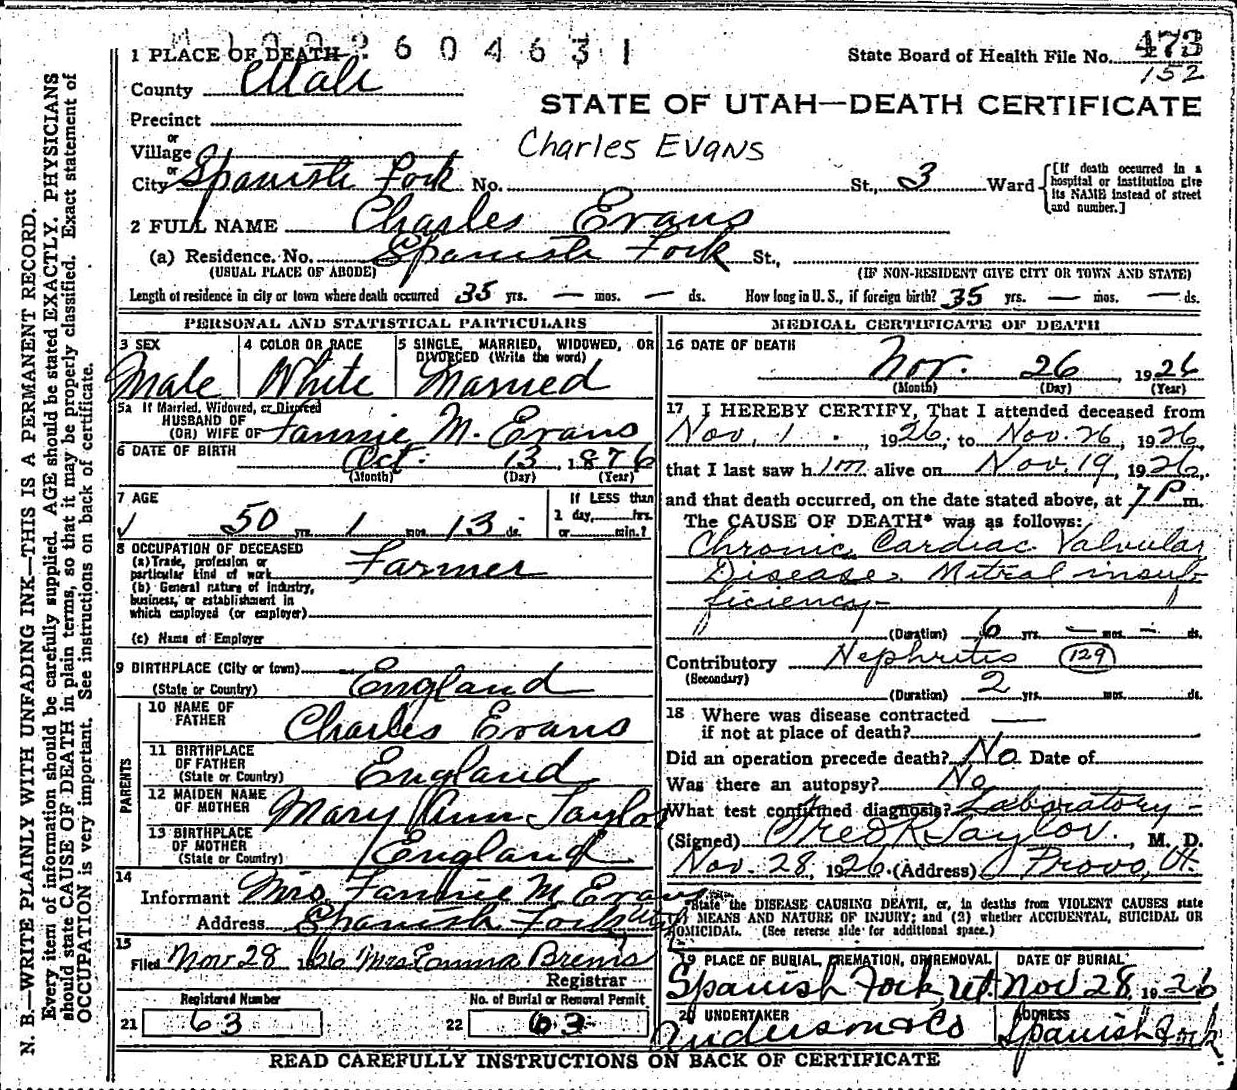 2604631
1 PLACE OF DEATH
State Board of Health File No. 473
152
County Utah
STATE OF UTAH—DEATH CERTIFICATE
Precinct
or
Village
Charles Evans
or
City Spanish Fork No. St., 3 Ward
[If death occurred in a hospital or institution give its NAME instead of street and number.]
2 FULL NAME Charles Evans
(a) Residence. No. Spanish Fork St.,
(USUAL PLACE OF ABODE) (IF NON-RESIDENT GIVE CITY OR TOWN AND STATE)
Length of residence in city or town where death occurred 35 yrs. — mos. — ds. How long in U. S., if foreign birth? 35 yrs. — mos. — ds.
PERSONAL AND STATISTICAL PARTICULARS
3 SEX 4 COLOR OR RACE 5 SINGLE, MARRIED, WIDOWED, OR
DIVORCED (Write the word)
Male White Married
5a If Married, Widowed, or Divorced
HUSBAND OF
(OR) WIFE OF Fannie M. Evans
6 DATE OF BIRTH Oct. 13, 1876
(Month) (Day) (Year)
7 AGE If LESS than
50 yrs. 1 mos. 13 ds. 1 day, hrs.
or min.?
8 OCCUPATION OF DECEASED
(a) Trade, profession or
particular kind of work Farmer
(b) General nature of Industry,
business, or establishment in
which employed (or employer)
(c) Name of Employer
9 BIRTHPLACE (City or town)
(State or Country) England
PARENTS
10 NAME OF
FATHER Charles Evans
11 BIRTHPLACE
OF FATHER England
(State or Country)
12 MAIDEN NAME
OF MOTHER Mary Ann Taylor
13 BIRTHPLACE
OF MOTHER England
(State or Country)
14
Informant Mrs. Fannie M. Evans
Address Spanish Fork
15
Filed Nov 28 1926 Mrs Emma Brems
Registrar
Registered Number No. of Burial or Removal Permit
21 63 22 63
MEDICAL CERTIFICATE OF DEATH
16 DATE OF DEATH
Nov. 26, 1926
(Month) (Day) (Year)
17 I HEREBY CERTIFY, That I attended deceased from
Nov. 1, 1926, to Nov. 26, 1926,
that I last saw him alive on Nov. 19, 1926,
and that death occurred, on the date stated above, at 7 P m.
The CAUSE OF DEATH* was as follows:
Chronic Cardiac Valvular
Disease. Mitral insuf-
ficiency-
(Duration) 6 yrs. — mos. — ds.
Contributory Nephritis 129
(Secondary)
(Duration) 2 yrs. mos. ds.
18 Where was disease contracted
if not at place of death?
Did an operation precede death? No Date of
Was there an autopsy? No
What test confirmed diagnosis? Laboratory-
(Signed) Fred K Taylor., M. D.
Nov. 28, 1926. (Address) Provo, Ut.
*State the DISEASE CAUSING DEATH, or, in deaths from VIOLENT CAUSES state
(1) MEANS AND NATURE OF INJURY; and (2) whether ACCIDENTAL, SUICIDAL OR
HOMICIDAL. (See reverse side for additional space.)
19 PLACE OF BURIAL, CREMATION, OR REMOVAL DATE OF BURIAL
Spanish Fork, Ut. Nov 28, 1926
20 UNDERTAKER ADDRESS
Anderson & Co Spanish Fork
READ CAREFULLY INSTRUCTIONS ON BACK OF CERTIFICATE
N. B.—WRITE PLAINLY WITH UNFADING INK—THIS IS A PERMANENT RECORD.
Every item of information should be carefully supplied. AGE should be stated EXACTLY. PHYSICIANS
should state CAUSE OF DEATH in plain terms, so that it may be properly classified. Exact statement of
OCCUPATION is very important. See instructions on back of certificate.